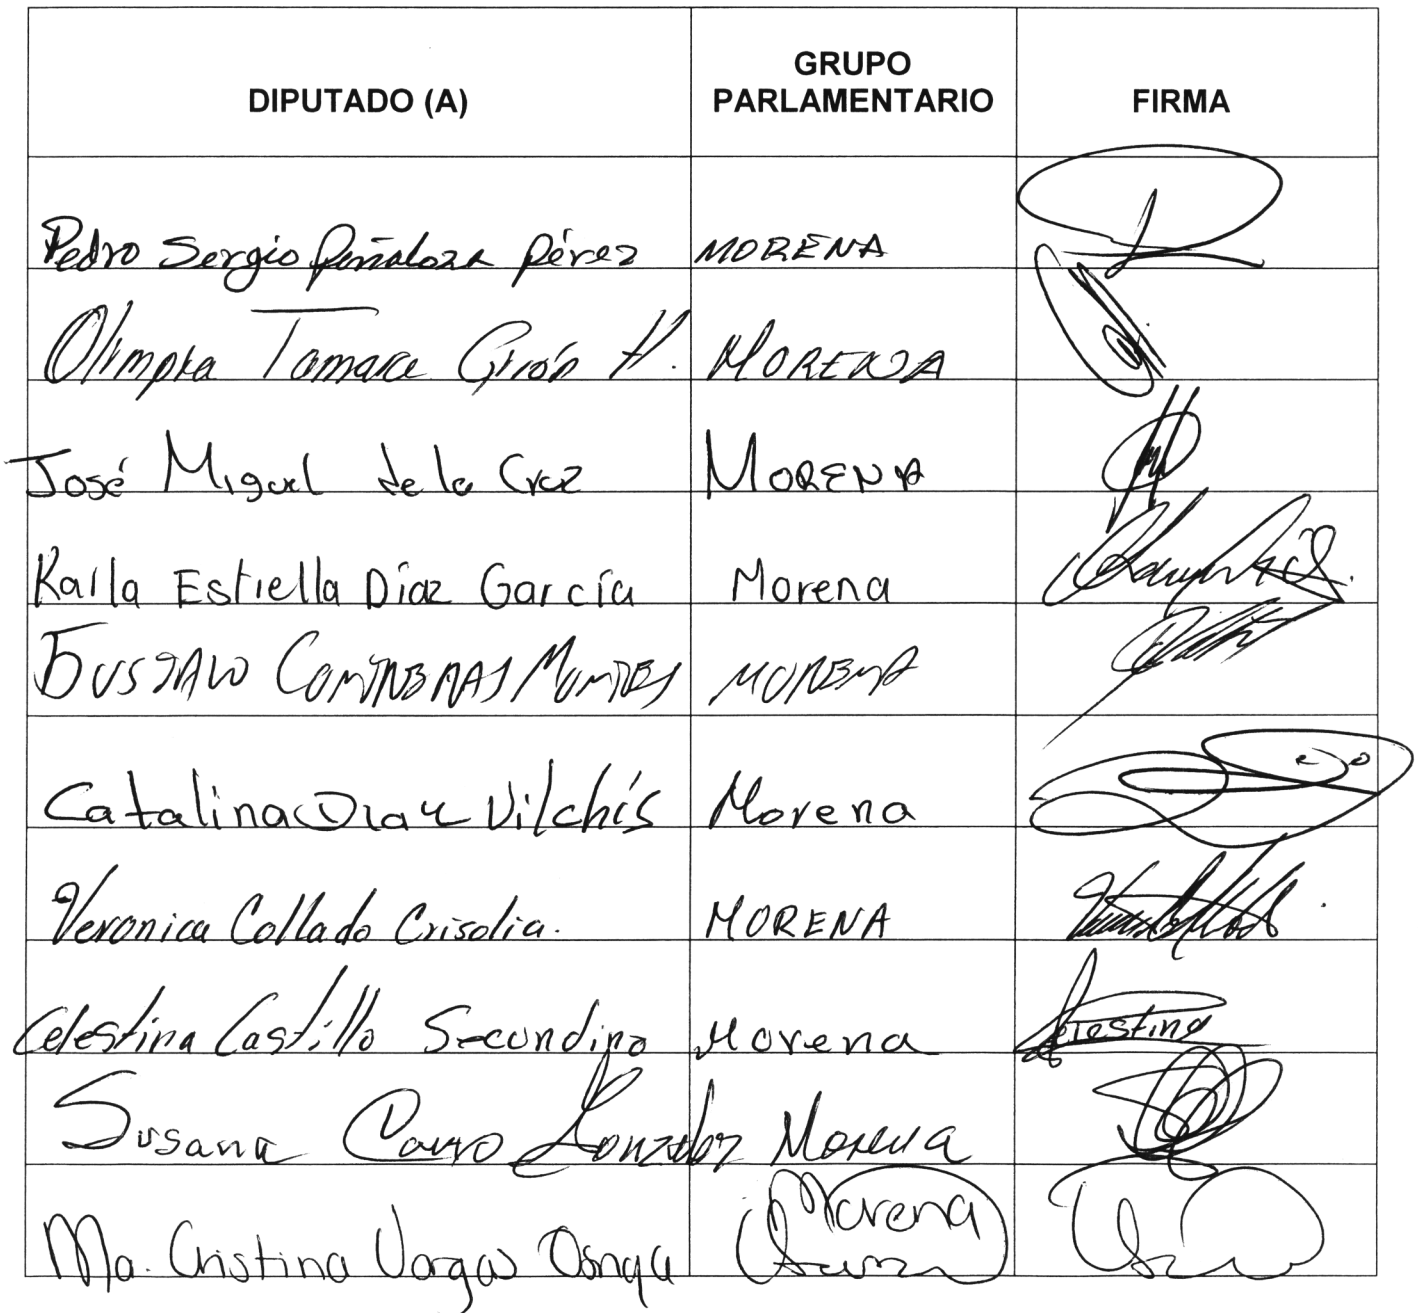 DIPUTADO (A) GRUPO PARLAMENTARIO FIRMA
Pedro Sergio Peñaloza Pérez MORENA
Olimpia Tamara Girón H. MORENA
José Miguel de la Cruz MORENA
Karla Estrella Díaz García Morena
GUSTAVO CONTRERAS MONTES MORENA
Catalina Diaz Vilchís Morena
Veronica Collado Crisolia. MORENA
Celestina Castillo Secundino Morena
Susana Cano González Morena
Ma. Cristina Vargas Osnaya Morena